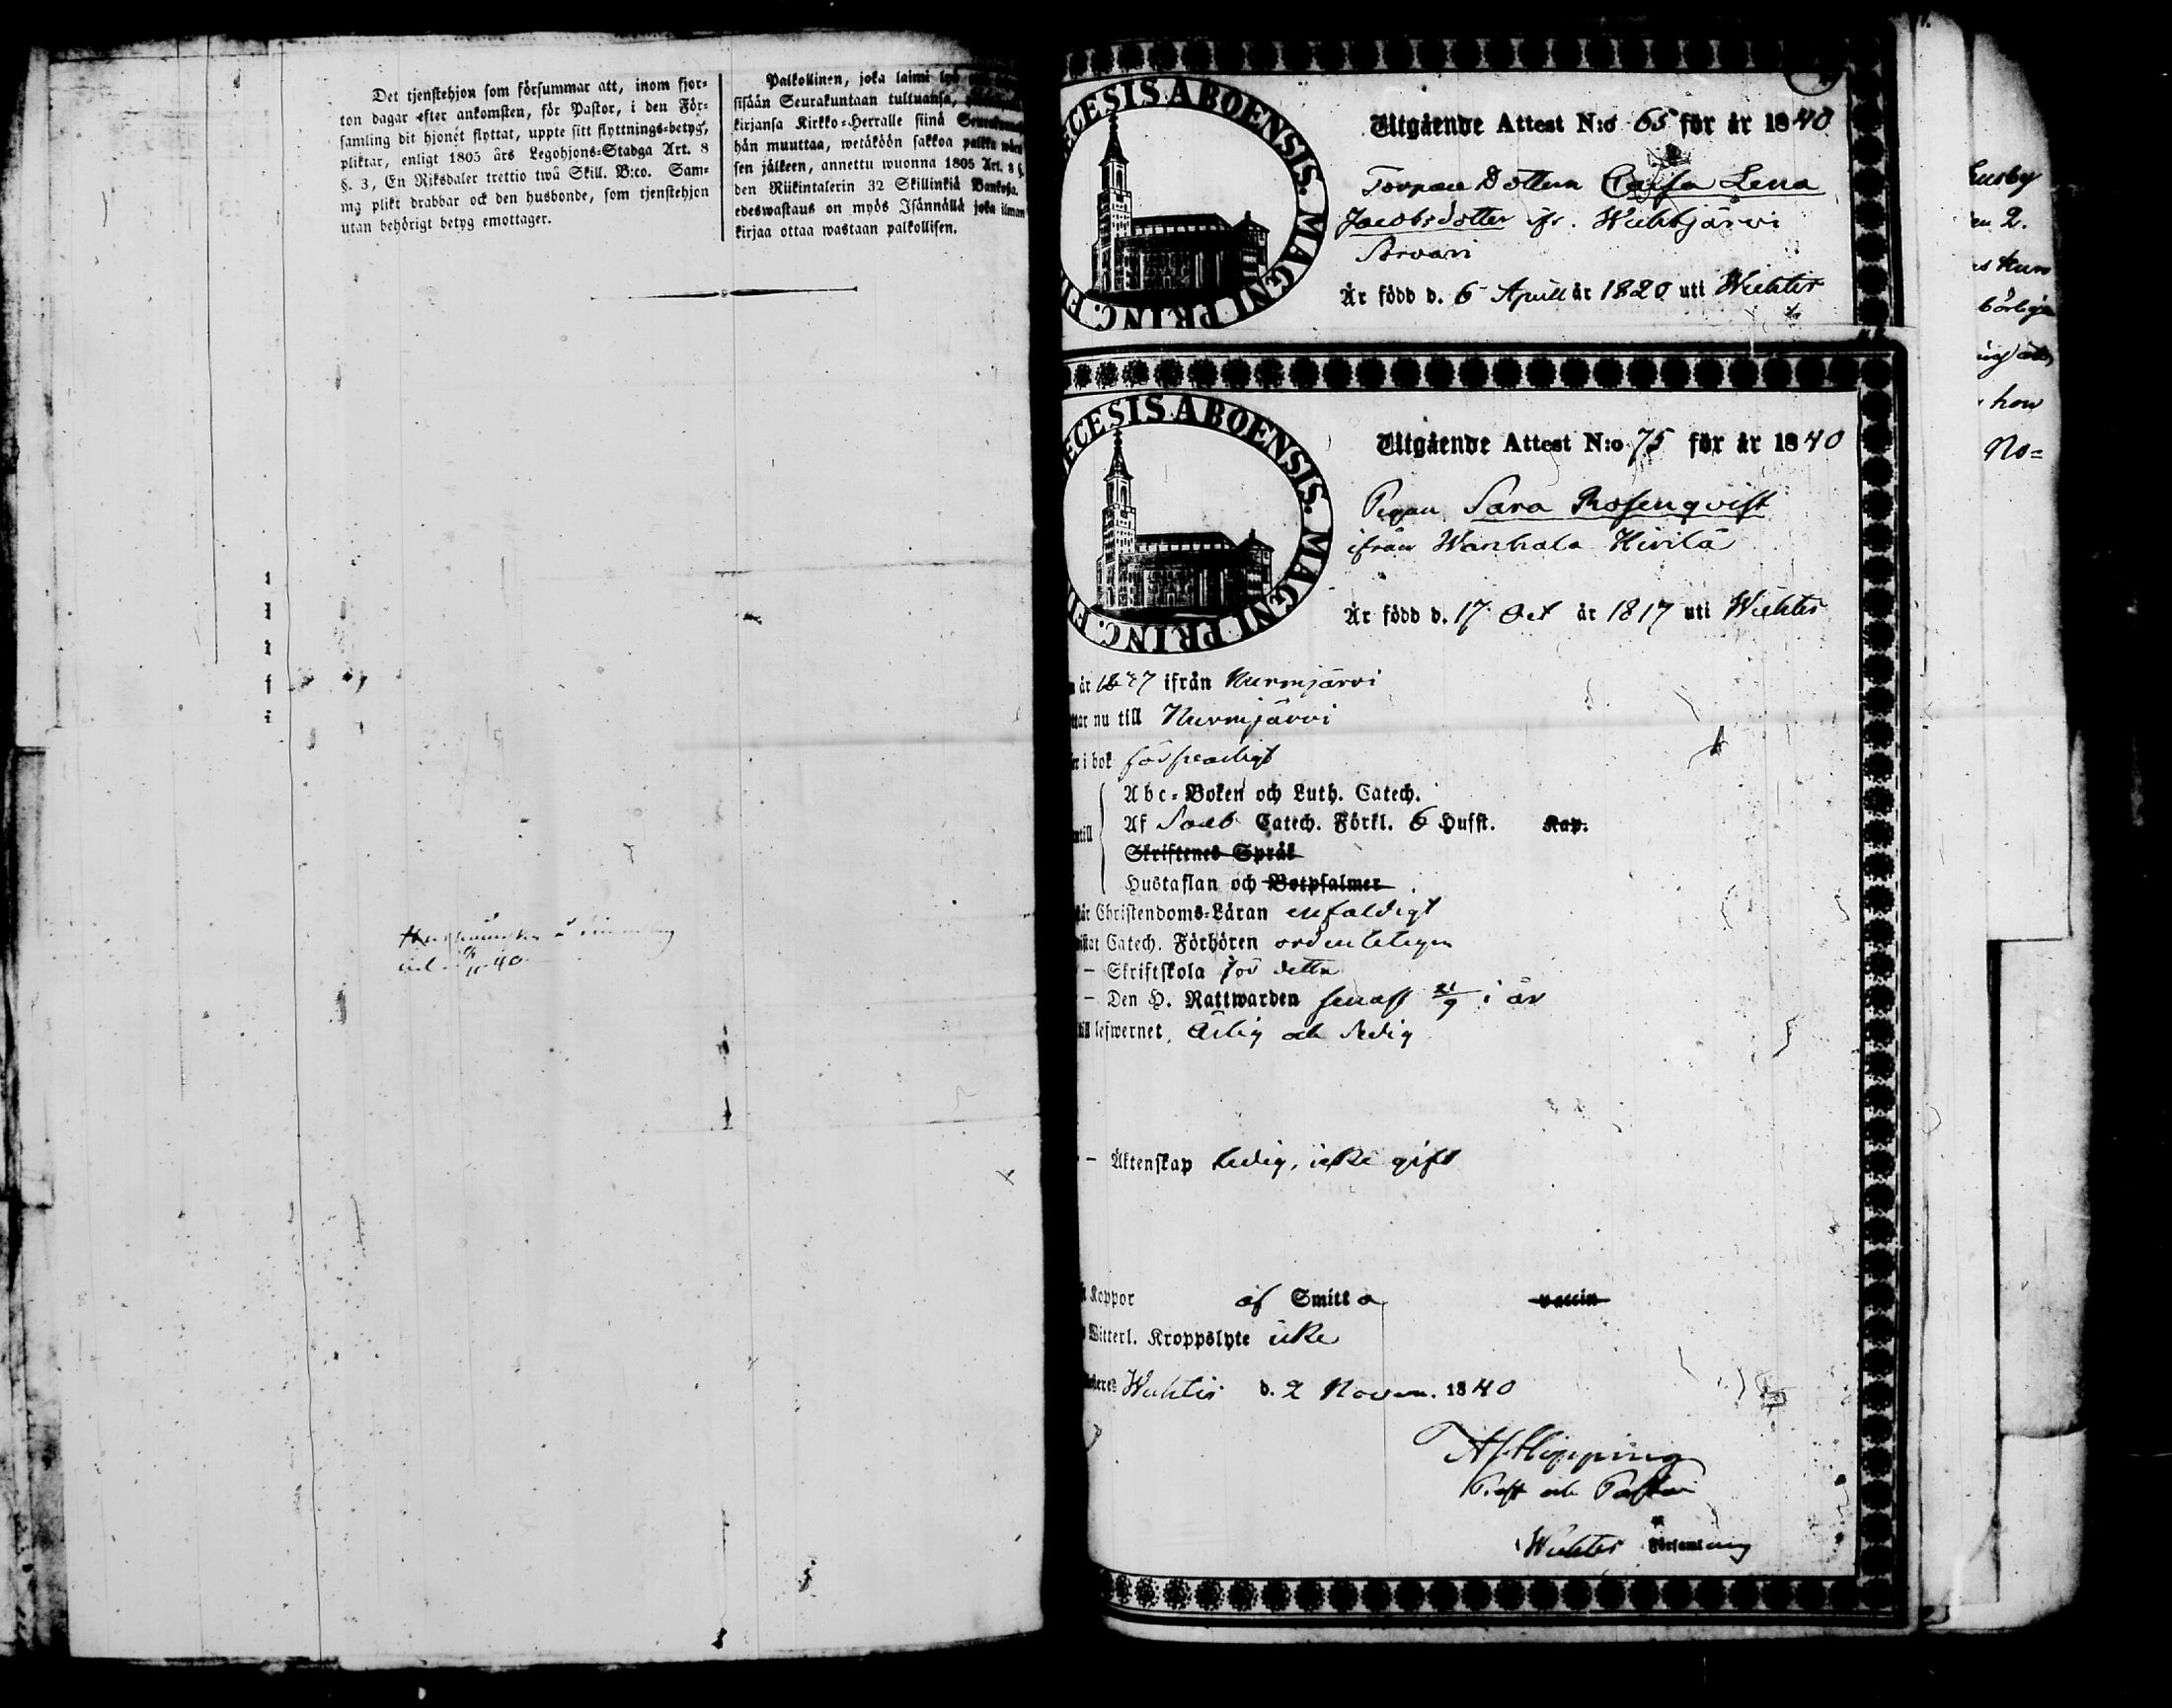 Det tjenstehjon som försummar att, inom fjor-
ton dagar efter ankomsten, för Pastor, i den För-
samling dit hjonet flyttat, uppte sitt flyttnings-betyg,
pliktar, enligt 1805 års Legohjons-Stadga Art. 8
§. 3, En Riksdaler trettio twå Skill. B:co. Sam-
ma plikt drabbar ock den husbonde, som tjenstehjon
utan behörigt betyg emottager.
Palkollinen, joka laimi lyö
sisään Seurakuntaan tultuansa,
kirjansa Kirkko-Herralle siinä
hän muuttaa, wetäköön sakkoa palkka
sen jälkeen, annettu wuonna 1805 Art. 8 §.
den Riikintalerin 32 Skillinkiä Bankosa.
edeswastaus on myös Isännällä joka ilman
kirjaa ottaa wastaan palkollisen.
ECESIS ABOENSIS. MAGNI PRINC.
Utgående Attest N:o 65 för år 1840
Torpare Dottern Caisa Lena
Jacobsdotter ifr. Wichtjärvi
Är född d. 6 April år 1820 uti Wichtis
ECESIS ABOENSIS. MAGNI PRINC.
Utgående Attest N:o 75 för år 1840
Pigan Sara Rosenqvist
ifrån Wanhala Hivilä
Är född d. 17 Oct år 1817 uti Wichtis
år 1837 ifrån Nurmjärvi
nu till Nurmjärvi
i bok försvarligt
Abc-Boken och Luth. Catech.
Af Sveb Catech. Förkl. 6 Hufst. Kap.
Skriftenes Språk
Hustaflan och Botpsalmer
Christendoms-Läran enfaldigt
Catech. Förhören ordenteligen
– Skriftskola för detta
– Den H. Nattwarden senast 21/9 i år
till lefwernet, Ärlig och Redig
– Äktenskap ledig, icke gift
Koppor af Smitta vaccin
Witterl. Kroppslyte icke
Wichtis d. 2 Novem. 1840
AJHipping
Prost och Pastor
Wichtis Församling
Husby
2.
hon
No=